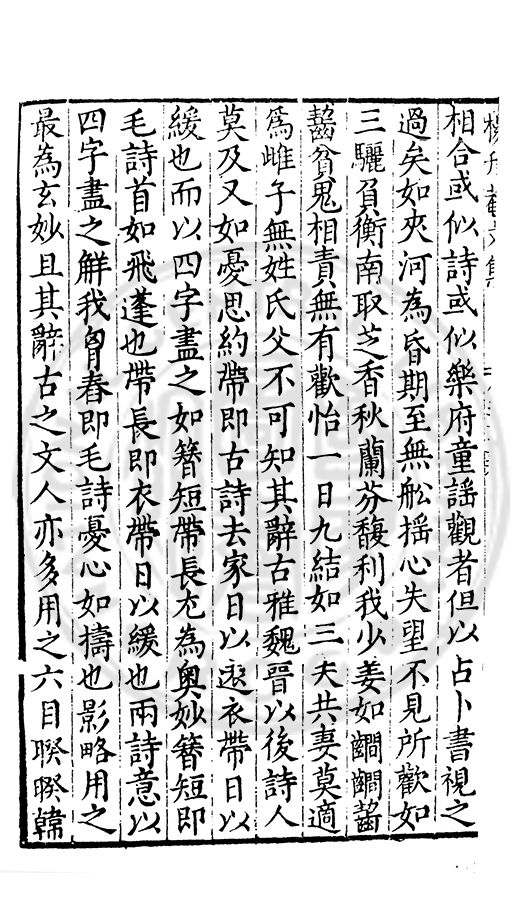 相合或似詩或似樂府童謡觀者但以占卜書視之
過矣如夾河為昏期至無船揺心失望不見所歡如
三驪負衡南取芝香秋蘭芬馥利我少姜如齺齺齧
齧貧鬼相責無有歡怡一日九結如三夫共妻莫適
為雌子無姓氏父不可知其辭古雅魏晋以後詩人
莫及又如憂思約帶即古詩去家日以逺衣帶日以
緩也而以四字盡之如簪短帶長尤為奥妙簪短即
毛詩首如飛蓬也帶長即衣帶日以緩也兩詩意以
四字盡之觧我胷春即毛詩憂心如擣也影略用之
最為玄妙且其辭古之文人亦多用之六目睽睽韓